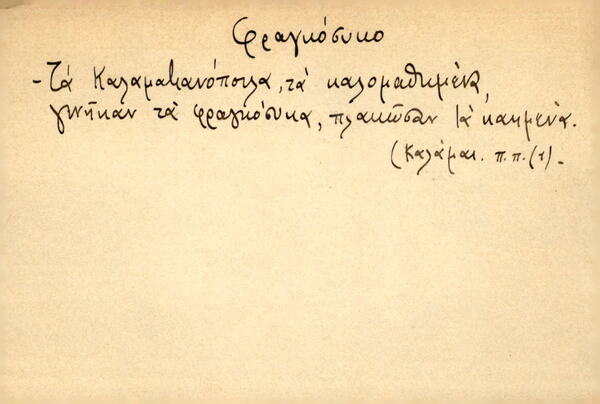 Φραγκόσυκο
- Τά Καλαματιανόπουλα, τά καλομαθημένα,
γινῆκαν τά φραγκόσυκα, πλακῶσαν τά καημένα.
(Καλάμαι. π.π. (1).-